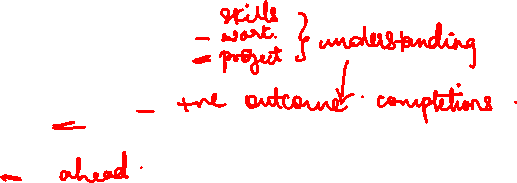 skills
- work.
- project } understanding
- +ve outcome completions.
- ahead.